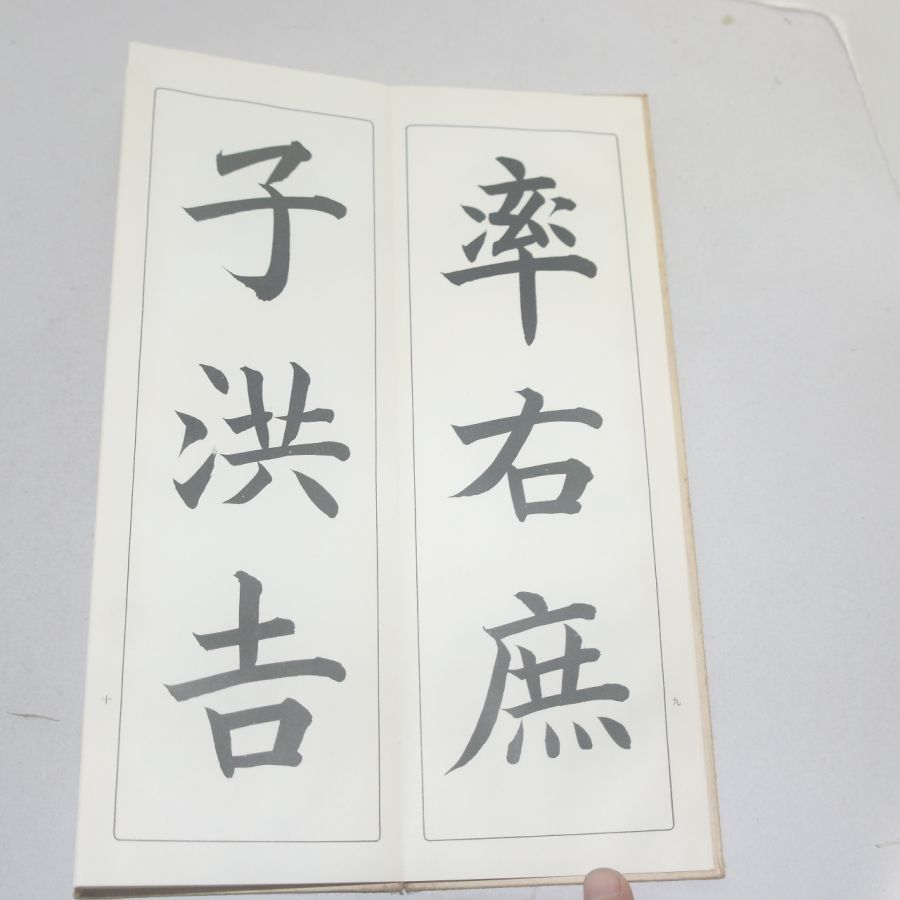 率右庶
九
子洪𠮷
十